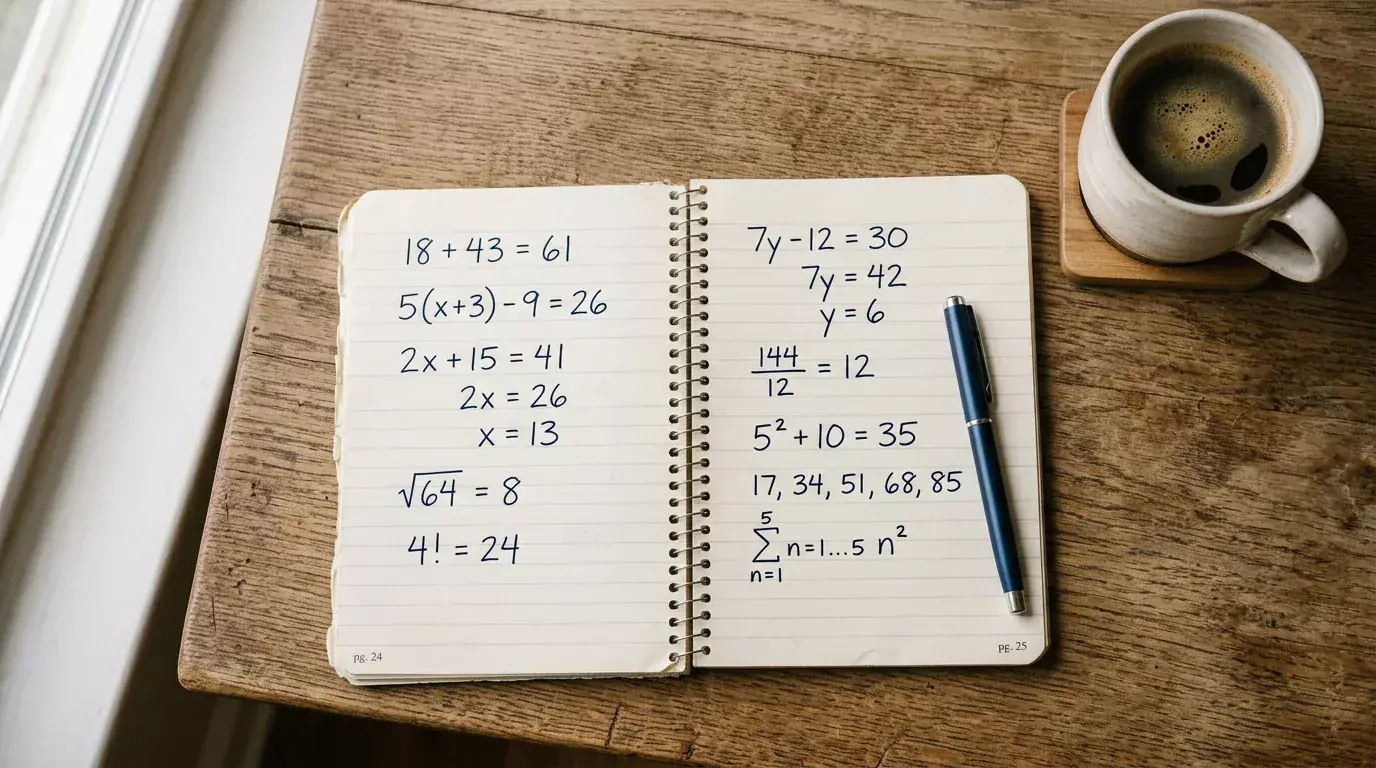 18 + 43 = 61
5(x+3) - 9 = 26
2x + 15 = 41
2x = 26
x = 13
√64 = 8
4! = 24
Pg. 24
7y - 12 = 30
7y = 42
y = 6
144
12
= 12
5² + 10 = 35
17, 34, 51, 68, 85
5
∑ n=1...5 n²
n=1
PE. 25